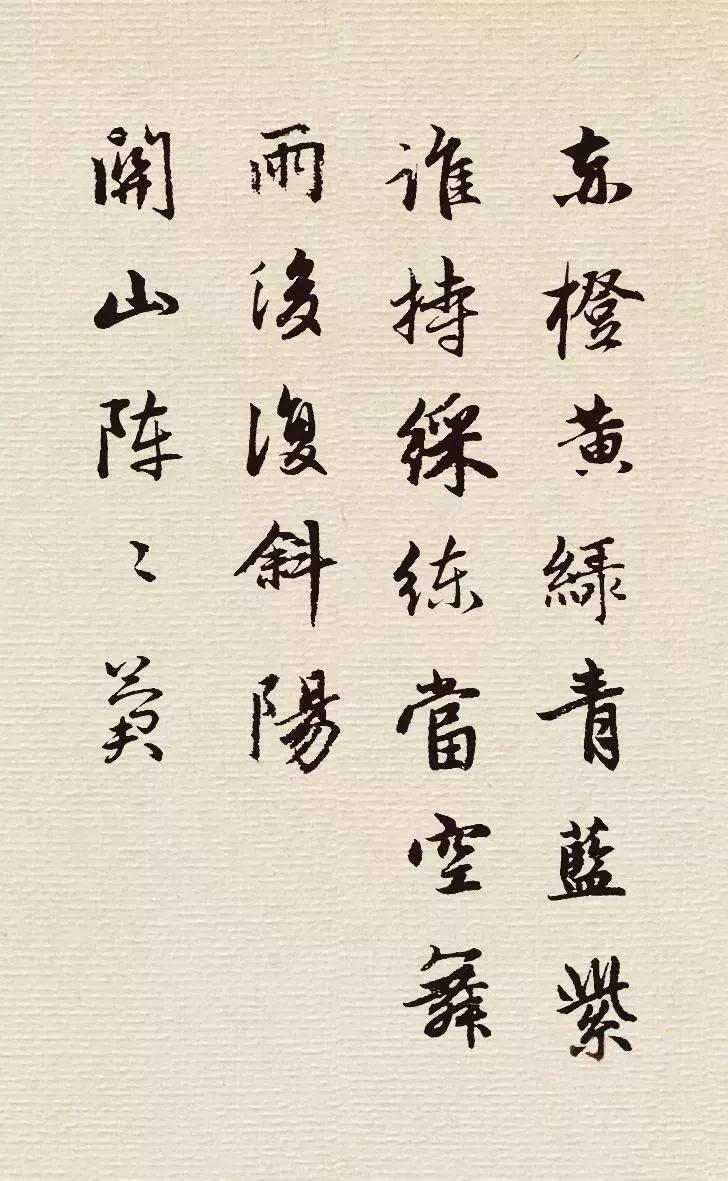 赤橙黄綠青藍紫
谁持綵练當空舞
雨後復斜陽
關山阵〻蒼